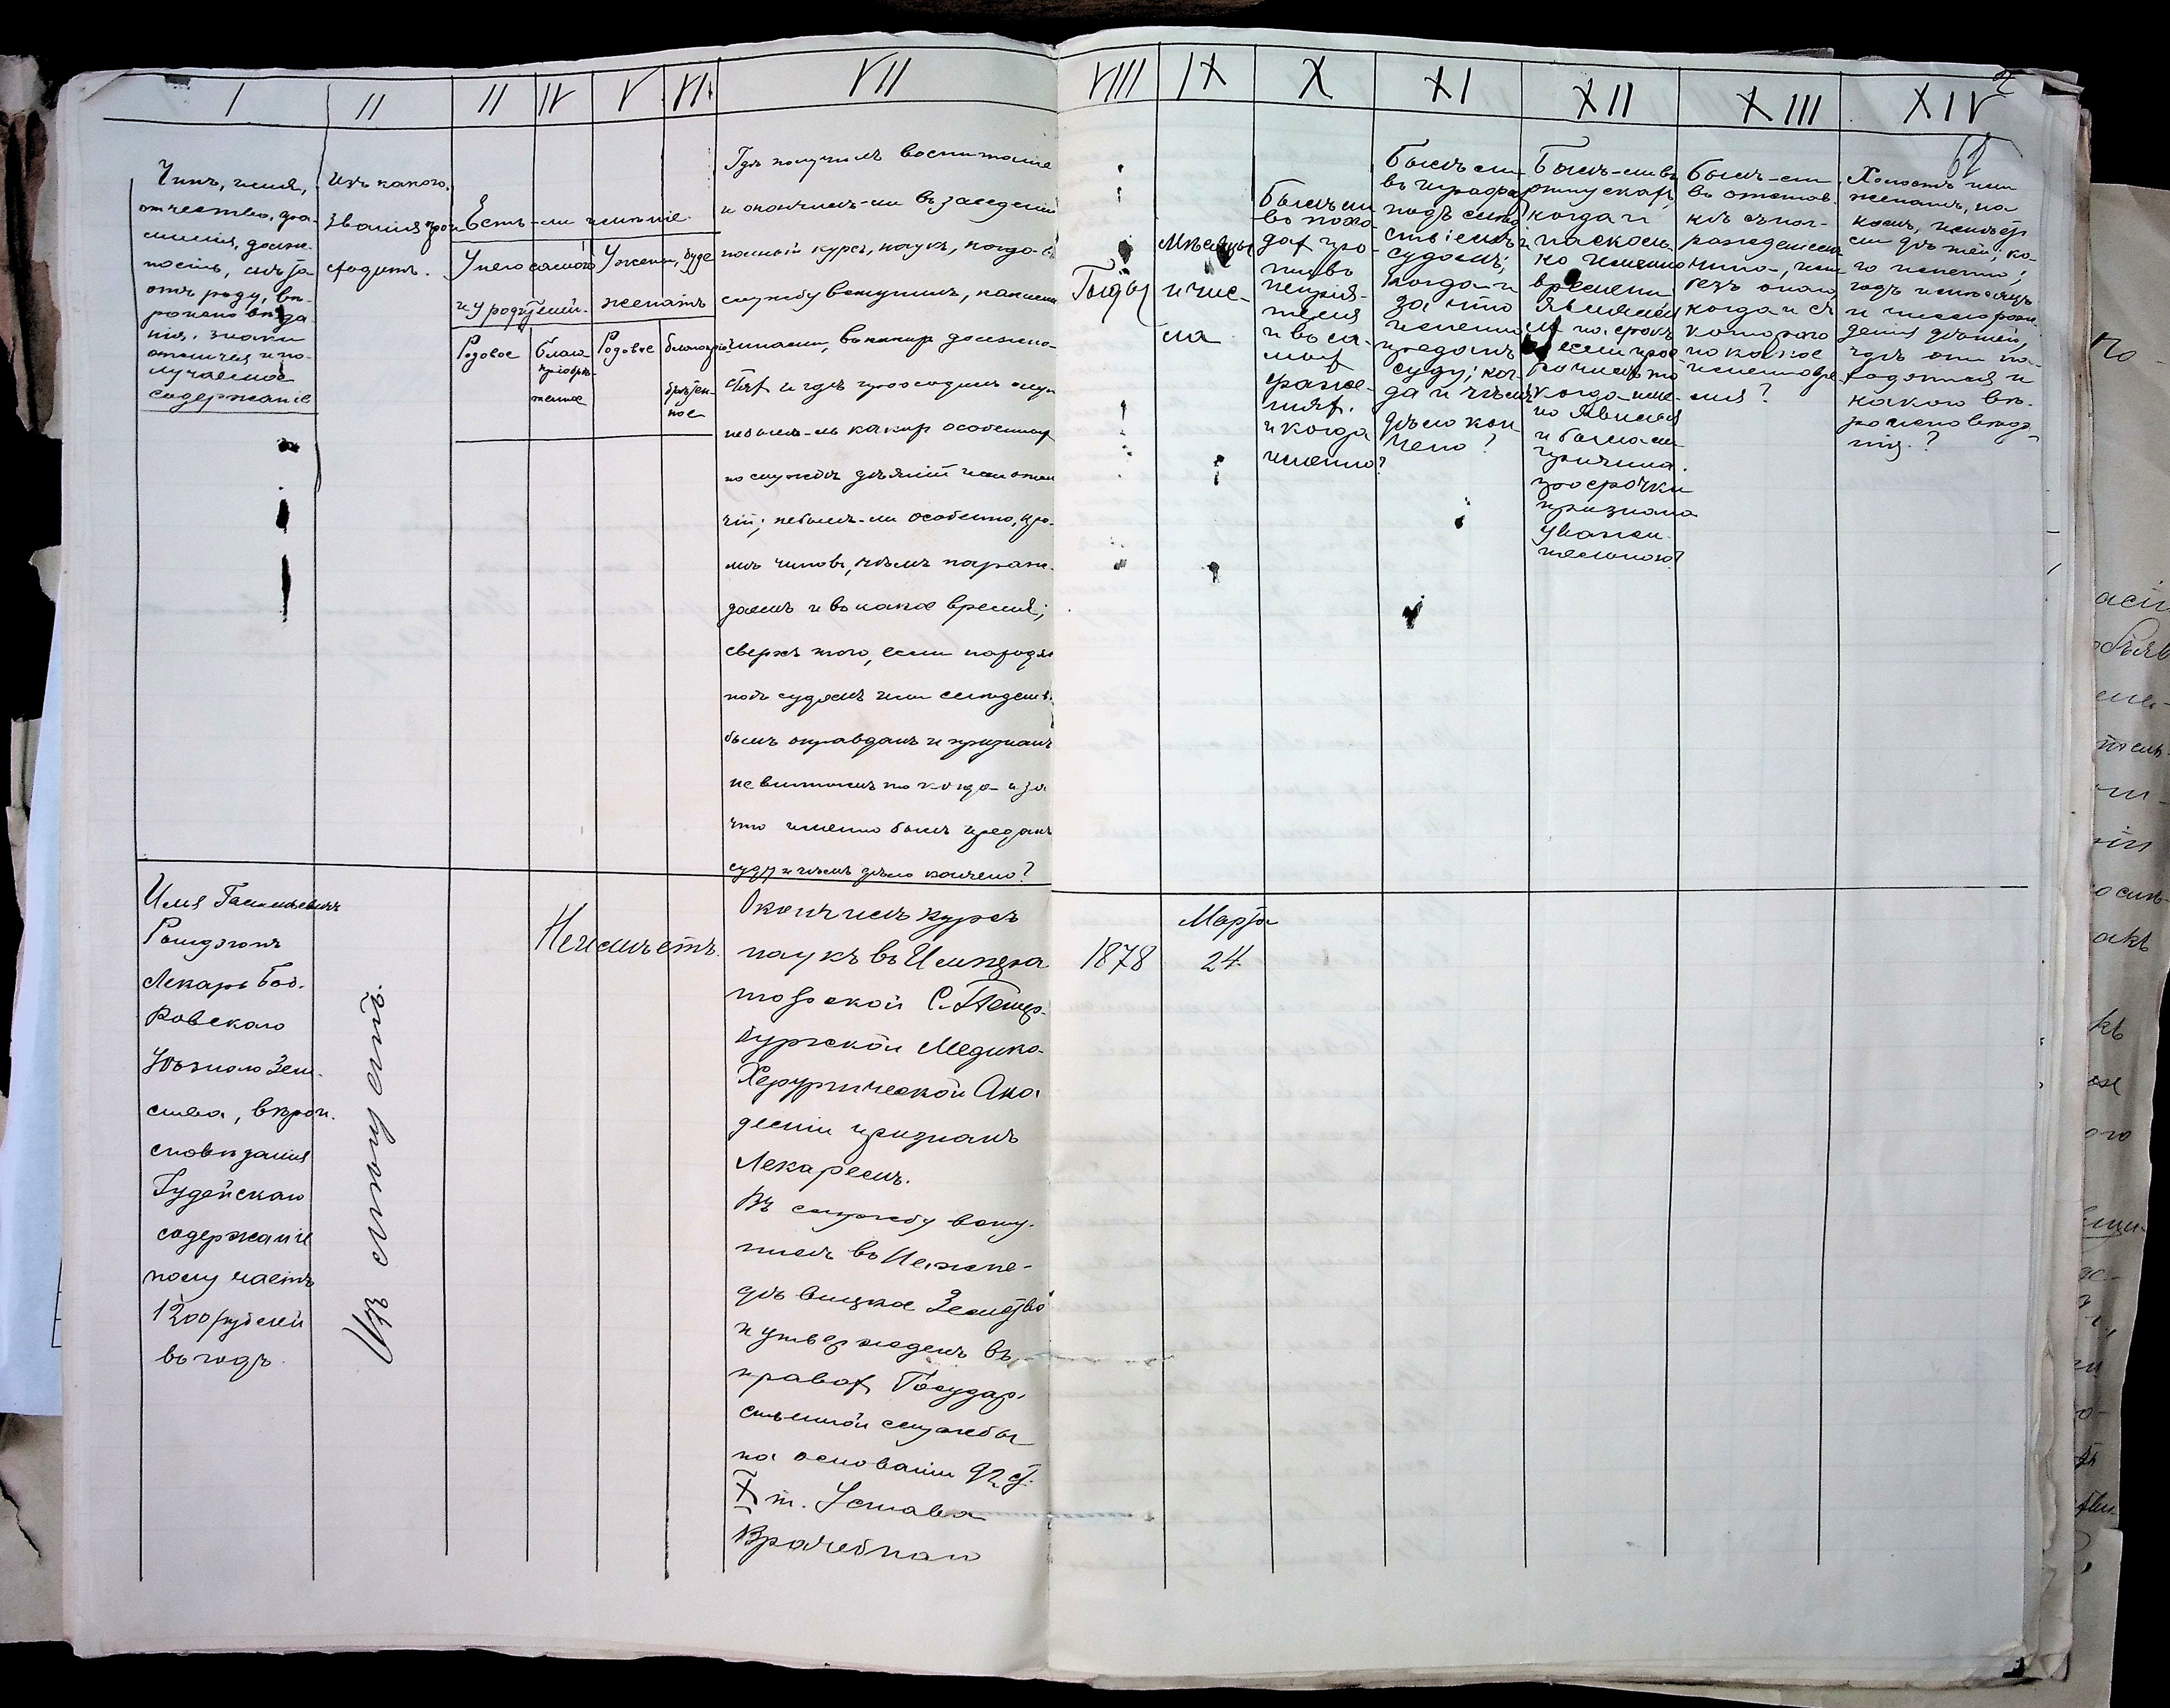 I
II
II
IV
V
VI.
VII
VIII
IX
X
XI
XII
XIII
XIV
2
Чинъ, имя,
отчество, фа-
милія, долж-
ность, лѣта
отъ роду, вѣ-
роисповѣда
нія, знаки
отличія и по-
лучаемое
содержаніе
Изъ какого
званія прои
сходитъ.
Есть-ли имѣніе
У него самого
и у родителей.
У жены, буде
женатъ
Родовое
Благо
пріобрѣ-
тенное
Родовое
благопріо
брѣтен-
ное
Гдѣ получилъ воспитаніе
и окончилъ-ли въ заведеніи
полный курсъ наукъ, когда въ
службу вступилъ, какими
чинами, въ какихъ должно-
стяхъ и гдѣ проходилъ оную
небыло-ль какихъ особенныхъ
по службѣ дѣяній или отли
чій; небылъ-ли особенно, кро-
мѣ чиновъ, чѣмъ награж-
даемъ и въ какое время;
сверхъ того, если находясь
подъ судомъ или слѣдств.
былъ оправданъ и признанъ
невиннымъ то когда и за
что именно былъ преданъ
суду и чѣмъ дѣло кончено?
Годы
Мѣсяцы
и чис-
ла
Былъ ли
въ похо-
дахъ про-
тивъ
непрія-
теля
и въ са-
мыхъ
сраже-
ніяхъ.
и когда
именно?
Былъ ли
въ штрафахъ
подъ слѣд
ствіемъ и
судомъ;
когда и
за что
именно
преданъ
суду; ког-
да и чѣмъ
дѣло кон
чено?
Былъ-ли въ
отпускахъ,
когда и
на сколь
ко именно
времени
явился
ли на срокъ
и если прос
рочилъ то
когда име-
но явился
и была ли
причина
просрочки
признана
уважи-
тельною?
былъ-ли
въ отстав-
кѣ съ наг-
ражденіемъ
чина, или
безъ онаго
когда и съ
котораго
по какое
именно вре
мя?
Холостъ или
женатъ, на
комъ, имѣетъ
ли дѣтей, ко-
го именно;
годъ и мѣсяцъ
и число рож-
денія дѣтей,
гдѣ они на-
ходятся и
какого вѣ-
роисповѣда-
нія?
Лекарь Боб-
ровскаго
Уѣзднаго Зем-
ства, вѣрои-
сповѣданія
Іудейскаго
содержаніе
получаетъ
1200 рублей
въ годъ.
Неимѣетъ.
Окончилъ курсъ
наукъ въ Импера
торской С.-Петер-
бургской Медико-
Херургической Ака
деміи признанъ
Лекаремъ.
Въ службу всту-
пилъ въ Нижне-
дѣвицкое Земство
и утвержденъ въ
правахъ Государ-
ственной службы
на основаніи 92 ст.
X т. Устава
Врачебнаго
1878
Марта
24.